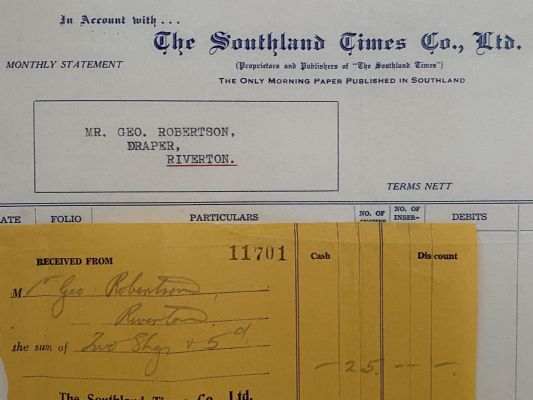 In Account with ...
The Southland Times Co., Ltd.
(Proprietors and Publishers of "The Southland Times")
MONTHLY STATEMENT
THE ONLY MORNING PAPER PUBLISHED IN SOUTHLAND
MR. GEO. ROBERTSON,
DRAPER,
RIVERTON.
TERMS NETT
ATE FOLIO PARTICULARS NO. OF INCHES NO. OF INSER- DEBITS
RECEIVED FROM 11701 Cash Discount
Mr Geo. Robertson,
Riverton
the sum of Two Shgs & 5d.
– 2 5. – – –.
The Southland Times Co. Ltd.